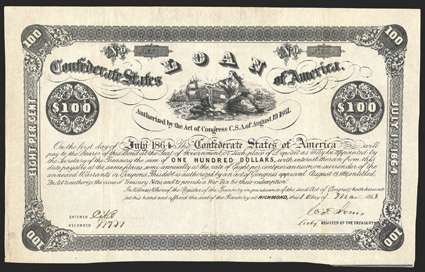 100 100
No No
LOAN
Confederate States of America.
$100 $100
Authorized by the Act of Congress C.S.A. of August 19 1861.
EIGHT PER CENT
JULY 1st 1864
On the first day of July 1864 The Confederate States of America will
pay to the bearer of this Bond at the Seat of Government
by the Secretary of the Treasury the sum of ONE HUNDRED DOLLARS, with interest thereon from this
date payable at the same place semi annually at the rate of eight per cent per annum on surrender of the
annexed Warrants or Coupons. This debt is authorized by an act of Congress approved August 19 1861 entitled
An Act to authorize the issue of Treasury Notes and to provide a War Tax for their redemption.
In Witness Whereof the Register of the Treasury in pursuance of the said Act of Congress hath hereunto
set his hand and affixed the seal of the Treasury at RICHMOND, this
ENTERED
RECORDED
REGISTER OF THE TREASURY
100 100